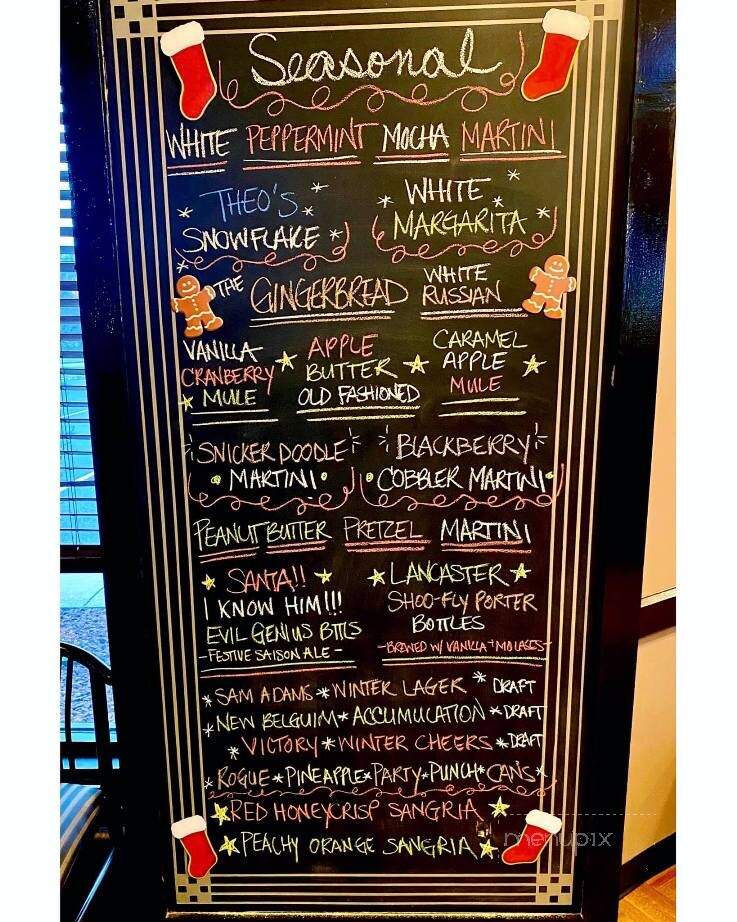 Seasonal
WHITE PEPPERMINT MOCHA MARTINI
THEO'S
SNOWFLAKE
WHITE
MARGARITA
THE GINGERBREAD
WHITE
RUSSIAN
VANILLA
CRANBERRY
MULE
APPLE
BUTTER
OLD FASHIONED
CARAMEL
APPLE
MULE
SNICKER DOODLE
MARTINI
BLACKBERRY
COBBLER MARTINI
PEANUT BUTTER PRETZEL MARTINI
SANTA!!
I KNOW HIM!!!
EVIL GENIUS BTLS
-FESTIVE SAISON ALE-
LANCASTER
SHOO-FLY PORTER
BOTTLES
-BREWED W/ VANILLA + MOLASES-
*SAM ADAMS*WINTER LAGER * DRAFT
*NEW BELGUIM* ACCUMULATION *DRAFT
*VICTORY*WINTER CHEERS*DRAFT
*ROGUE*PINEAPPLE*PARTY*PUNCH*CANS*
RED HONEYCRISP SANGRIA
PEACHY ORANGE SANGRIA
menupix